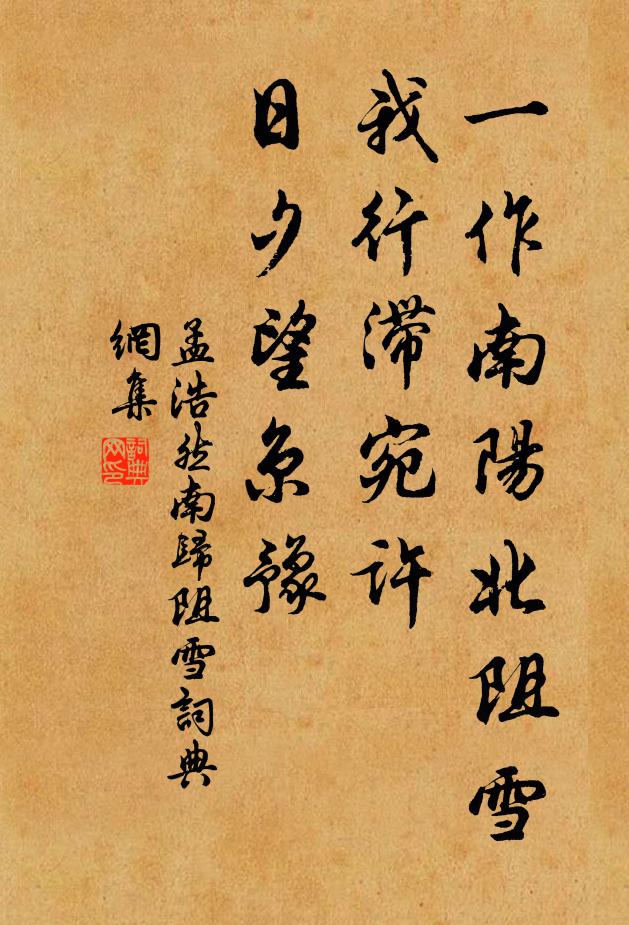 一作南陽北阻雪
我行滯宛許
日夕望京豫
孟浩然南歸阻雪詞典
網集
詞典
网印